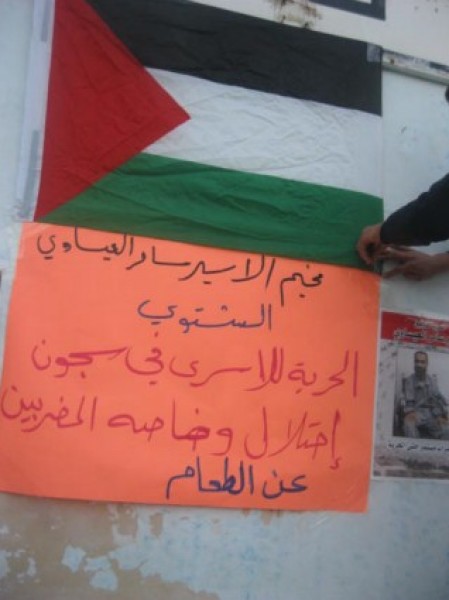 مخيم الاسير سامر العيساوي
الشتوي
الحرية للاسرى في سجون
إحتلال وخاصه المضربين
عن الطعام